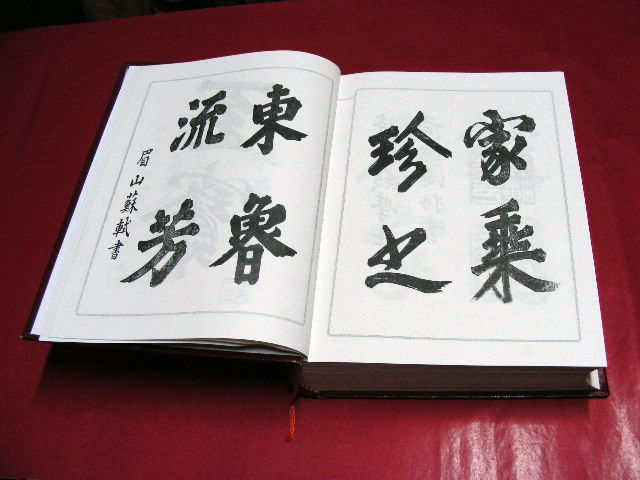 家乘
珍之
東魯
流芳
眉山蘇軾書